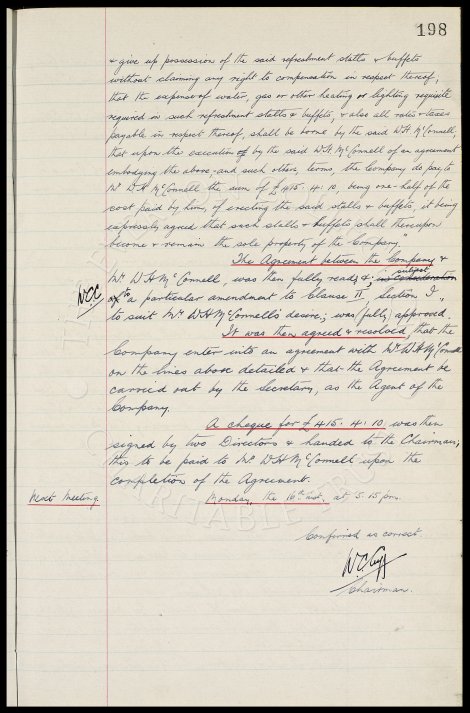 198
& give up possession of the said refreshment stalls & buffets
without claiming any right to compensation in respect thereof,
that the expense of water, gas or other heating or lighting requisite
required in such refreshment stalls & buffets, & also all rates & taxes
payable in respect thereof, shall be borne by the said W.H. McConnell,
that upon the execution of by the said W.H. McConnell of an agreement
embodying the above, and such other, terms, the Company do pay to
Mr. W.H. McConnell the sum of £415. 4. 10, being one-half of the
cost paid by him, of erecting the said stalls & buffets, it being
expressly agreed that such stalls & buffets shall thereupon
become & remain the sole property of the Company.
The Agreement between the Company &
Mr. W.H. McConnell, was then fully read, & in consideration subject
WCC of to a particular amendment to Clause II, Section I,
to suit Mr. W.H. McConnell's desire, was fully approved.
It was then agreed & resolved, that the
Company enter into an agreement with Mr. W.H. McConnell
on the lines above detailed & that the Agreement be
carried out by the Secretary, as the Agent of the
Company.
A cheque for £415. 4. 10. was then
signed by two Directors & handed to the Chairman,
this to be paid to Mr. W.H. McConnell upon the
completion of the Agreement.
Next Meeting. Monday, the 16th inst, at 5.15 pm.
Confirmed as correct.
W C Cuff
Chairman.